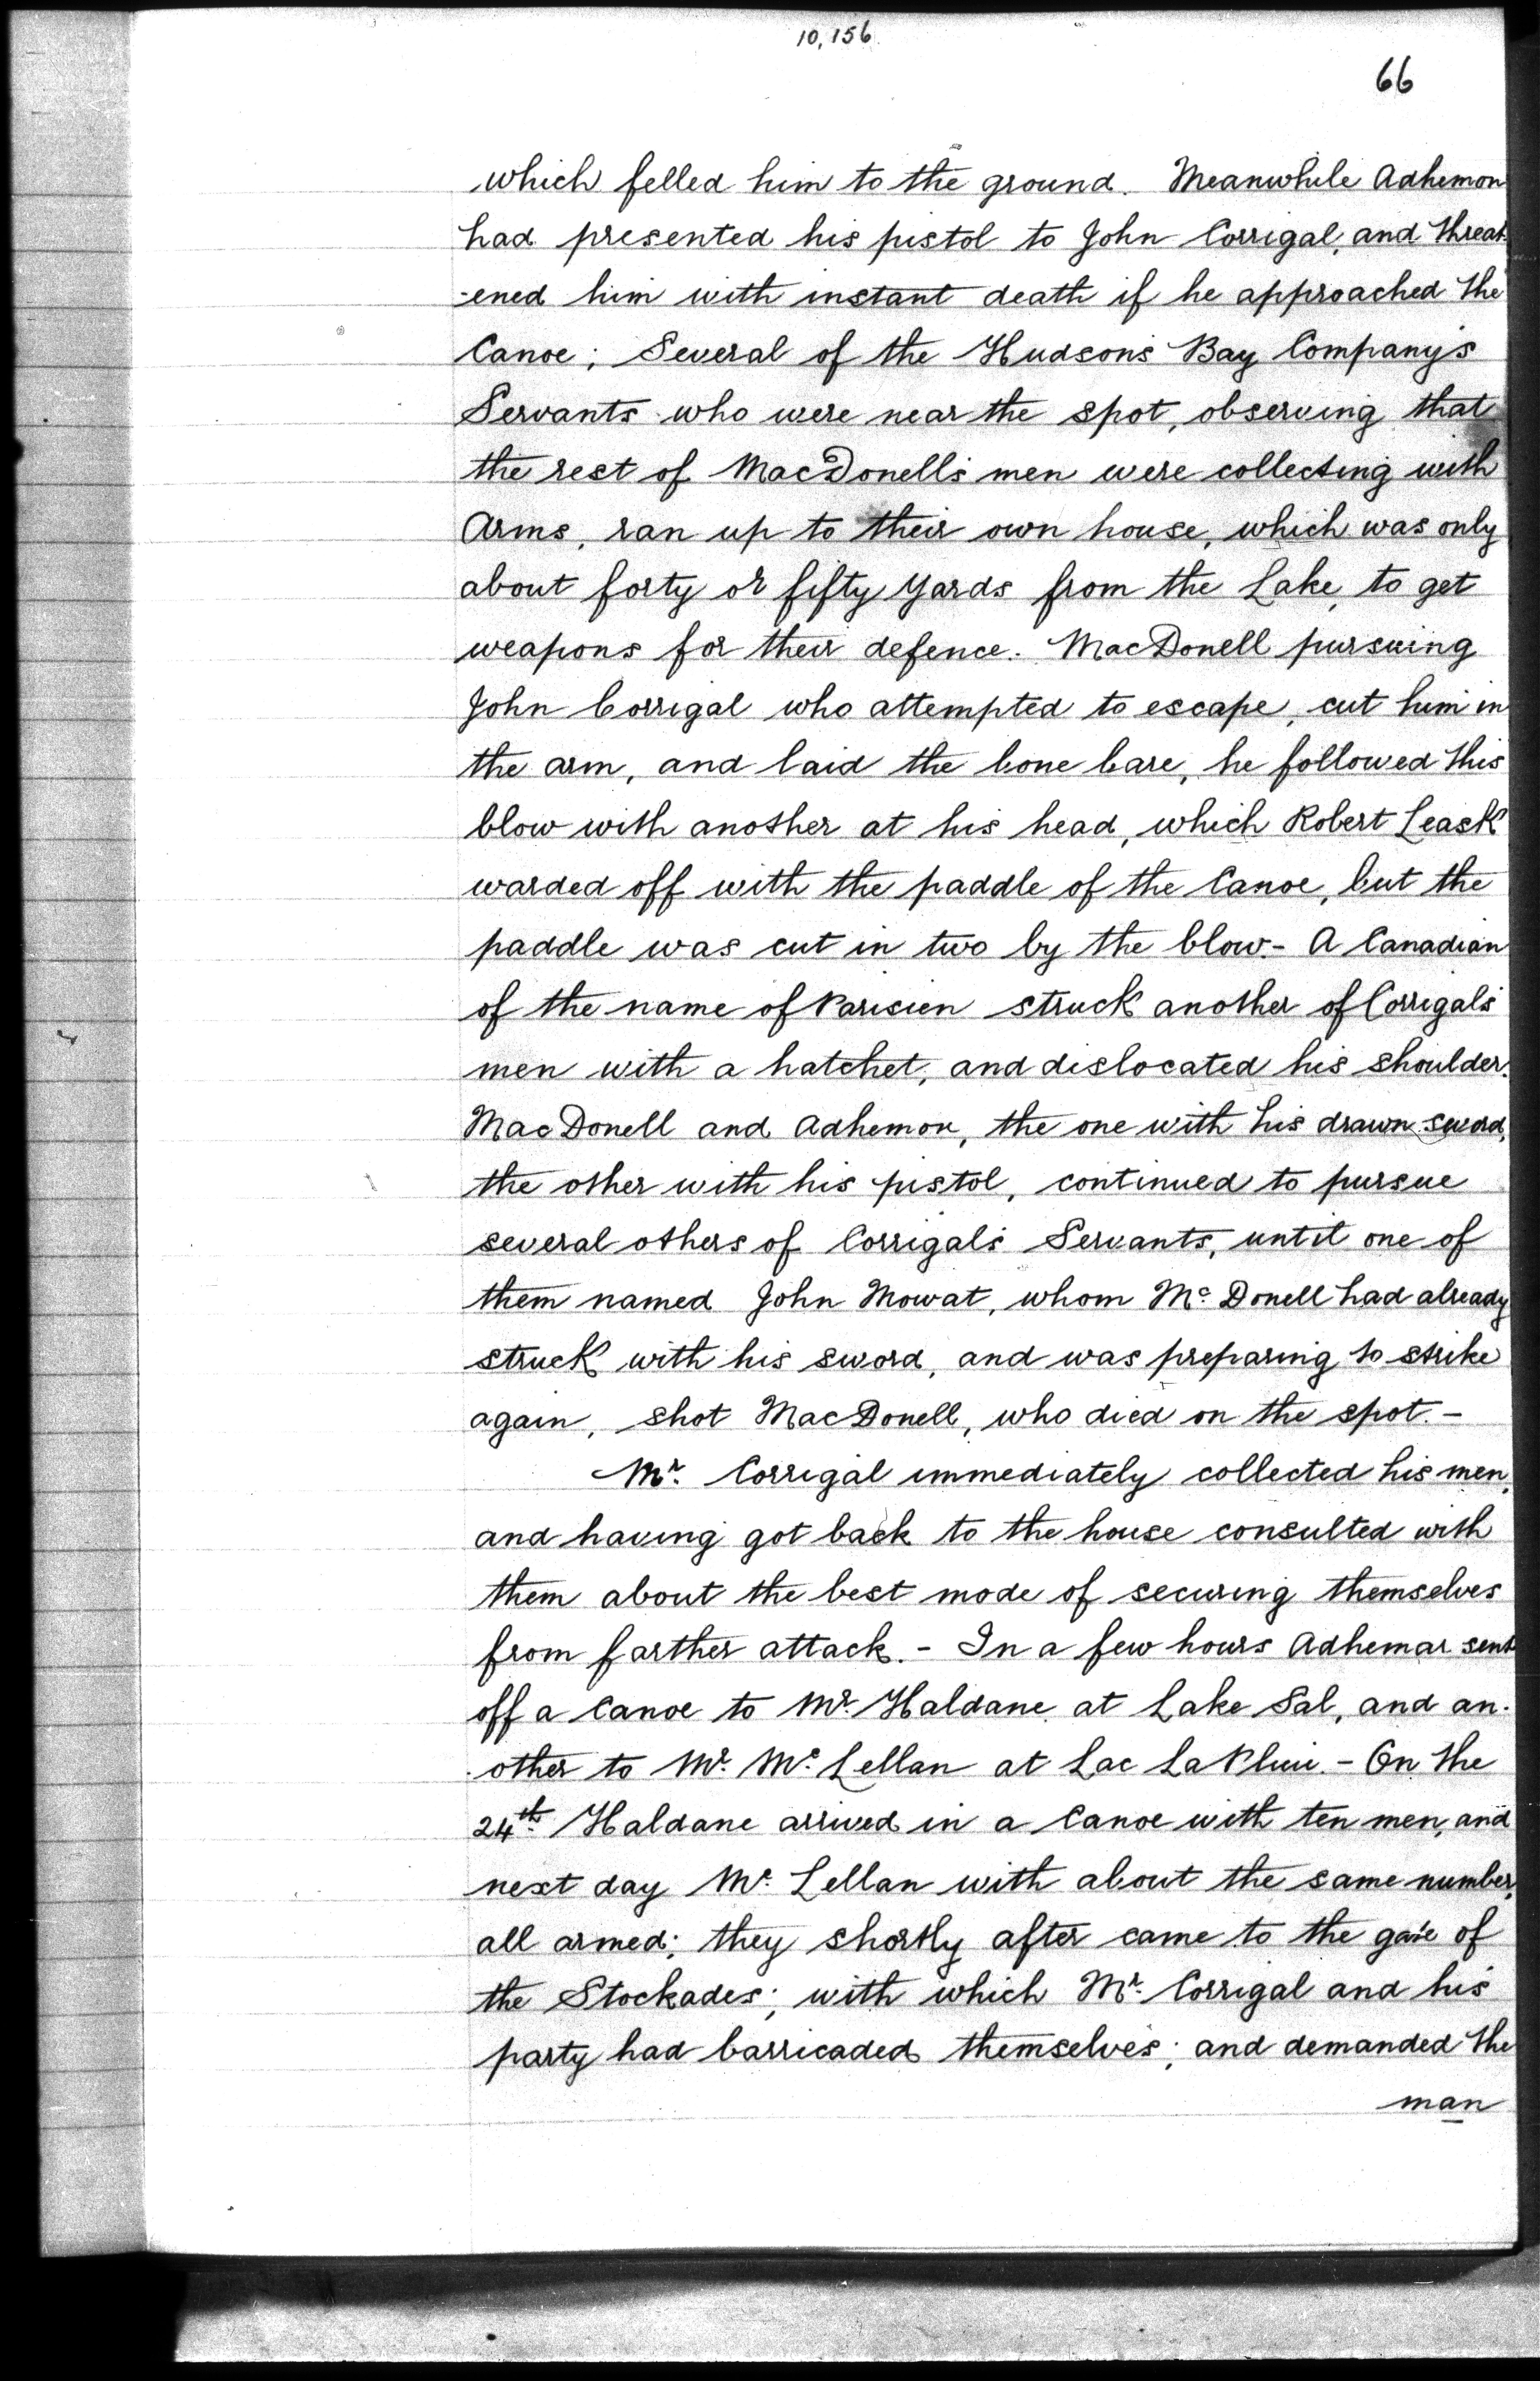 10,156
66
which felled him to the ground. Meanwhile Adhemon
had presented his pistol to John Corrigal, and threat
-ened him with instant death if he approached the
Canoe; Several of the Hudson's Bay Company's
Servants who were near the spot, observing that
the rest of MacDonell's men were collecting with
Arms, ran up to their own house, which was only
about forty or fifty yards from the Lake, to get
weapons for their defence. MacDonell pursuing
John Corrigal who attempted to escape, cut him in
the arm, and laid the bone bare, he followed this
blow with another at his head, which Robert Leask
warded off with the paddle of the Canoe, but the
paddle was cut in two by the blow. - A Canadian
of the name of Parisien struck another of Corrigal's
men with a hatchet, and dislocated his shoulder.
MacDonell and Adhemon, the one with his drawn sword,
the other with his pistol, continued to pursue
several others of Corrigal's Servants, until one of
them named John Mowat, whom Mc. Donell had already
struck with his sword, and was preparing to strike
again, shot MacDonell, who died on the spot. -
Mr. Corrigal immediately collected his men,
and having got back to the house consulted with
them about the best mode of securing themselves
from farther attack. - In a few hours Adhemar sent
off a Canoe to Mr. Haldane at Lake Sal, and an-
-other to Mr. Mc. Lellan at Lac La Pluie. - On the
24th. Haldane arrived in a Canoe with ten men, and
next day Mc. Lellan with about the same number,
all armed; they shortly after came to the gate of
the Stockades; with which Mr. Corrigal and his
party had barricaded themselves; and demanded the
man